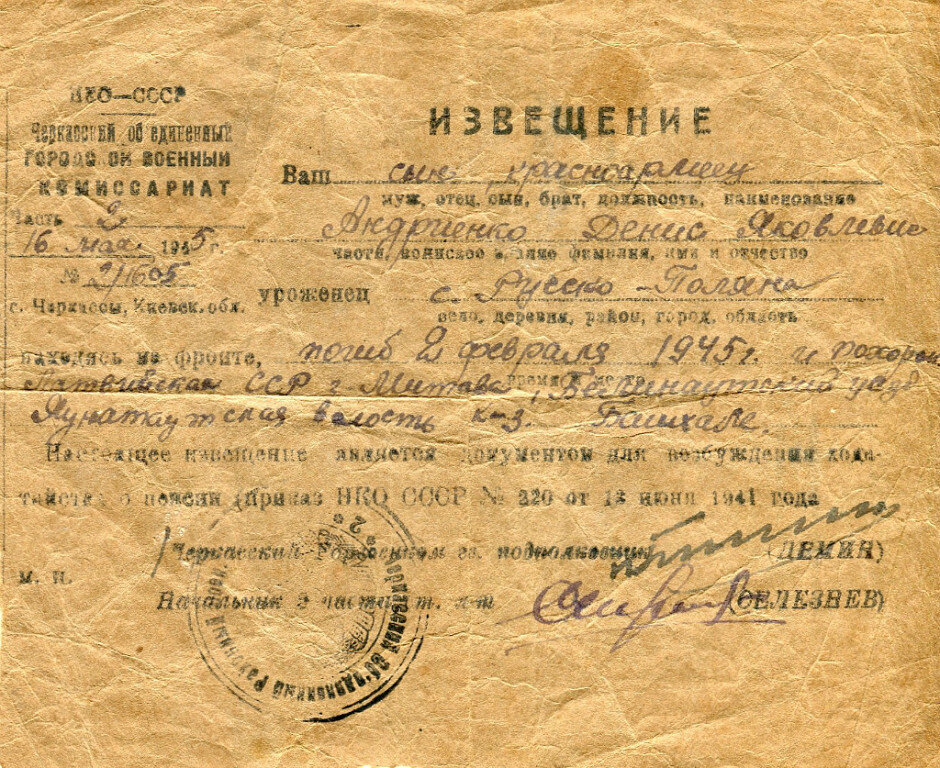 НКО—СССР
Черкасский об'единенный
ГОРОДСКОЙ ВОЕННЫЙ
КОМИССАРИАТ
Часть 2
16 мая 1945 г.
№ 2/1605
г. Черкассы, Киевск. обл.
ИЗВЕЩЕНИЕ
Ваш сын красноармеец
муж, отец, сын, брат, должность, наименование
Андриенко Денис Яковлевич
части, воинское звание фамилия, имя и отчество
уроженец с. Русско-Поляна
село, деревня, район, город, область
находясь на фронте, погиб 2 февраля 1945 г. и похорон
Латвийская ССР г. Митава,
Яунаткаутская волость к-з.
Настоящее извещение является документом для возбуждения хода-
тайства о пенсии (приказ НКО СССР № 220 от 12 июня 1941 года
Черкасский Горвоенком гв. подполковник (ДЕМИН)
М. П.
Начальник 2 части ст. л-т (СЕЛЕЗНЕВ)